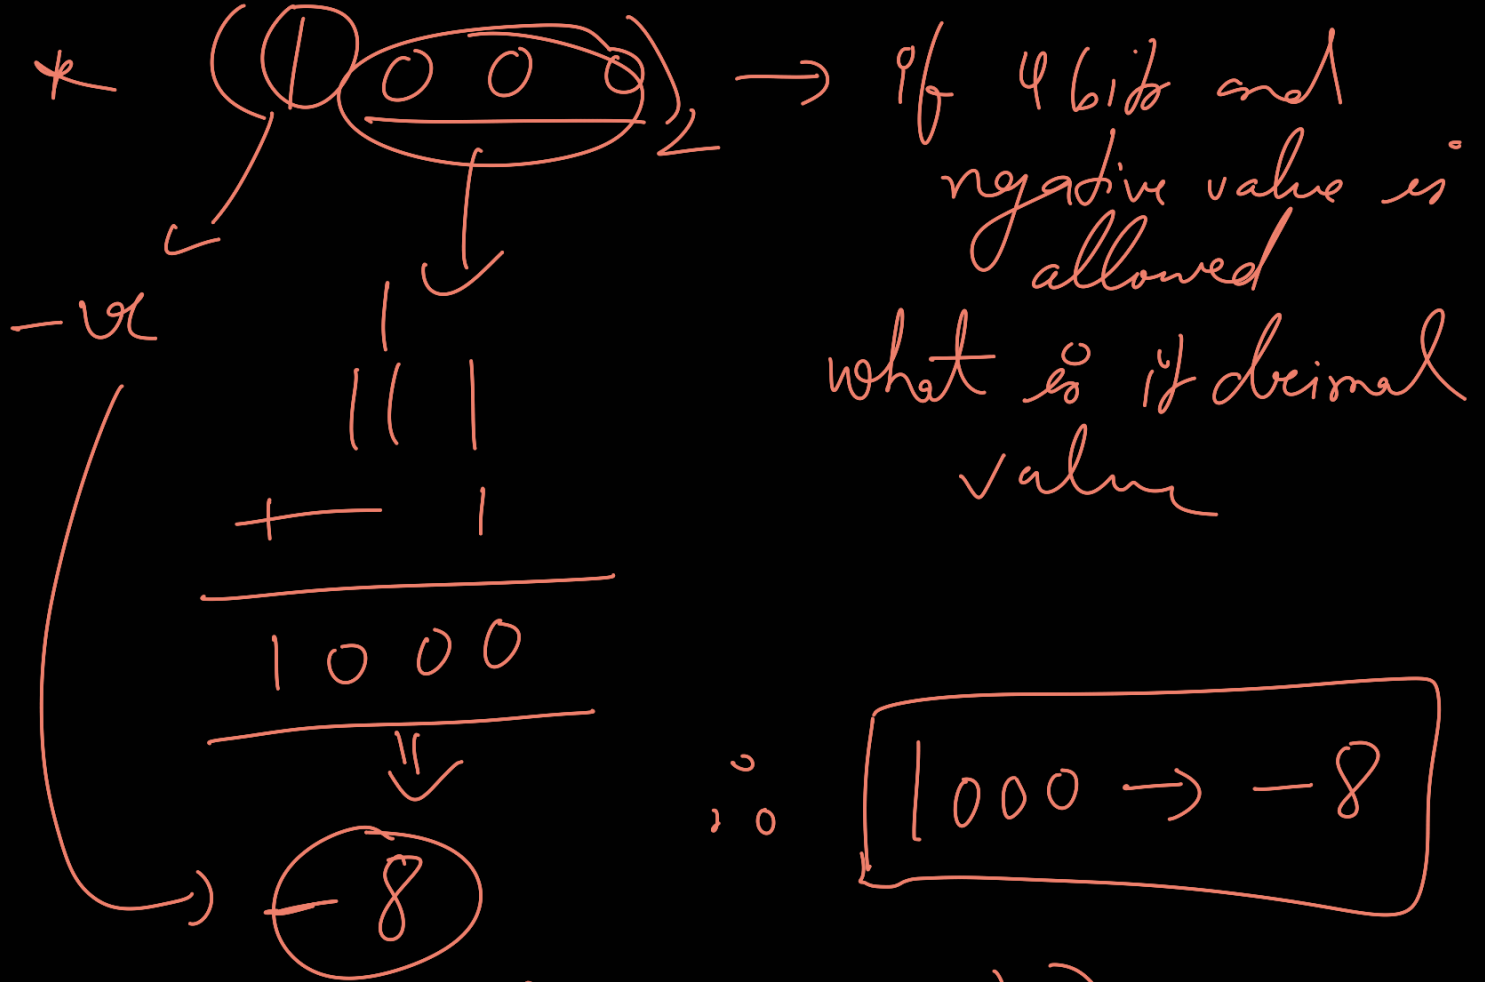 * (1 0 0 0)2 → if 4 bits and
negative value is
allowed
what is it decimal
value
-ve
1
1 1 1
+ 1
1 0 0 0
-8
∴ 1000 → -8